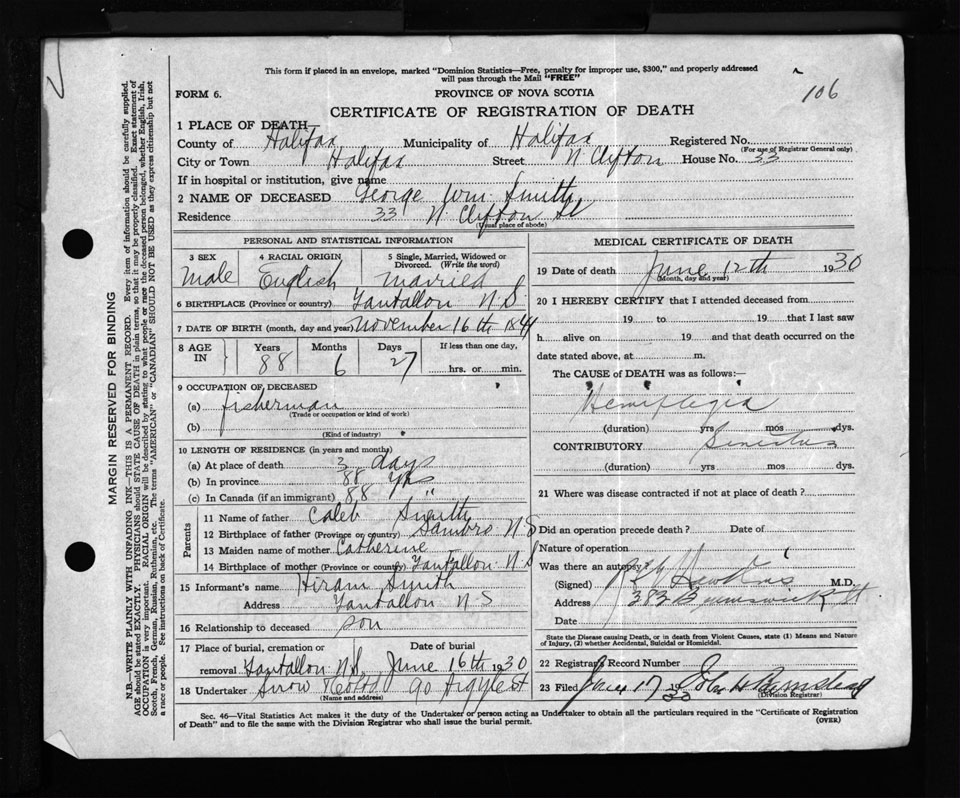 This form if placed in an envelope, marked "Dominion Statistics—Free, penalty for improper use, $300," and properly addressed
will pass through the Mail "FREE"
106
FORM 6.
PROVINCE OF NOVA SCOTIA
CERTIFICATE OF REGISTRATION OF DEATH
1 PLACE OF DEATH—
County of Halifax Municipality of Halifax Registered No.
(For use of Registrar General only)
City or Town Halifax Street N Clifton House No. 33
If in hospital or institution, give name
2 NAME OF DECEASED George Wm. Smith
Residence 33 N. Clifton St
(Usual place of abode)
PERSONAL AND STATISTICAL INFORMATION
3 SEX 4 RACIAL ORIGIN 5 Single, Married, Widowed or
Divorced. (Write the word)
Male English Married
6 BIRTHPLACE (Province or country) Tantallon N.S.
7 DATE OF BIRTH (month, day and year) November 16th 1841
8 AGE IN Years Months Days If less than one day,
88 6 27 hrs. or min.
9 OCCUPATION OF DECEASED
(a) fisherman
(Trade or occupation or kind of work)
(b)
(Kind of industry)
10 LENGTH OF RESIDENCE (in years and months)
(a) At place of death 3 days
(b) In province 88 yrs
(c) In Canada (if an immigrant) 88 "
Parents
11 Name of father Caleb Smith
12 Birthplace of father (Province or country) Sambro N S
13 Maiden name of mother Catherine —
14 Birthplace of mother (Province or country) Tantallon N S
15 Informant's name Hiram Smith
Address Tantallon N S
16 Relationship to deceased son
17 Place of burial, cremation or Date of burial
removal Tantallon N.S. June 16th 1930
18 Undertaker Snow & Co Ltd 90 Argyle St
(Name and address)
MEDICAL CERTIFICATE OF DEATH
19 Date of death June 12th 1930
(Month, day and year)
20 I HEREBY CERTIFY that I attended deceased from
19 to 19 that I last saw
h alive on 19 and that death occurred on the
date stated above, at m.
The CAUSE of DEATH was as follows:—
Hemiplegia
(duration) yrs mos dys.
CONTRIBUTORY
(duration) yrs mos dys.
21 Where was disease contracted if not at place of death?
Did an operation precede death? Date of
Nature of operation
Was there an autopsy?
(Signed) M.D.
Address 383 Brunswick St.
Date
State the Disease causing Death, or in death from Violent Causes, state (1) Means and Nature
of Injury, (2) whether Accidental, Suicidal or Homicidal.
22 Registrar's Record Number
23 Filed June 17 1930
(Division Registrar)
Sec. 46—Vital Statistics Act makes it the duty of the Undertaker or person acting as Undertaker to obtain all the particulars required in the "Certificate of Registration
of Death" and to file the same with the Division Registrar who shall issue the burial permit.
(OVER)
MARGIN RESERVED FOR BINDING
N.B.—WRITE PLAINLY WITH UNFADING INK—THIS IS A PERMANENT RECORD. Every item of information should be carefully supplied.
AGE should be stated EXACTLY. PHYSICIANS should STATE CAUSE OF DEATH in plain terms, so that it may be properly classified. Exact statement of
OCCUPATION is very important. RACIAL ORIGIN will be described by stating to what people or race the deceased person belonged, whether English, Irish,
Scotch, French, German, Russian, Ruthenian, etc. The terms "AMERICAN" or "CANADIAN" SHOULD NOT BE USED as they express citizenship but not
a race or people. See instructions on back of Certificate.